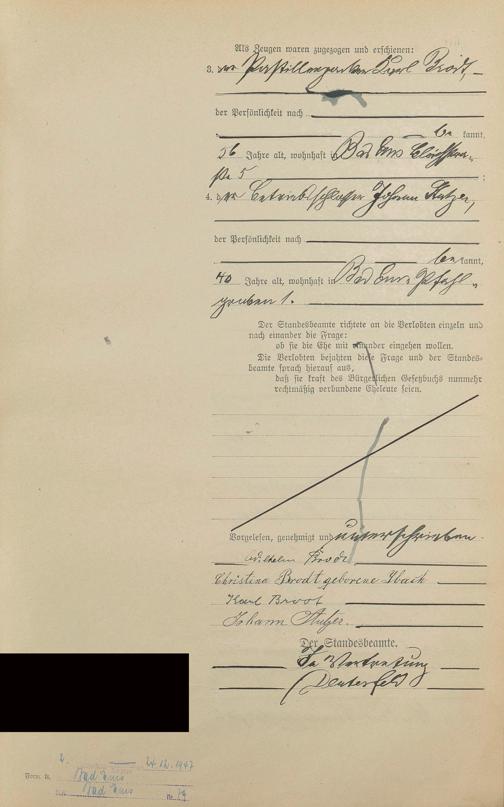 Als Zeugen waren zugezogen und erschienen:
3. der Pastillenpacker Karl Brodt,
der Persönlichkeit nach
be kannt,
56 Jahre alt, wohnhaft in Bad Ems Blücherstra-
ße 5 ;
4. der Betriebsschlosser Johann
der Persönlichkeit nach
be kannt,
40 Jahre alt, wohnhaft in Bad Ems Pfahl-
graben 1.
Der Standesbeamte richtete an die Verlobten einzeln und
nach einander die Frage:
ob sie die Ehe mit einander eingehen wollen.
Die Verlobten bejahten diese Frage und der Standes-
beamte sprach hierauf aus,
daß sie kraft des Bürgerlichen Gesetzbuchs nunmehr
rechtmäßig verbundene Eheleute seien.
Vorgelesen, genehmigt und unterschrieben
Wilhelm Brodt
Christina Brodt geborene Ibach
Karl Brodt
Johann
Der Standesbeamte.
In Vertretung
Form. B.
24.12.1947
Bad Ems
Bad Ems Nr.